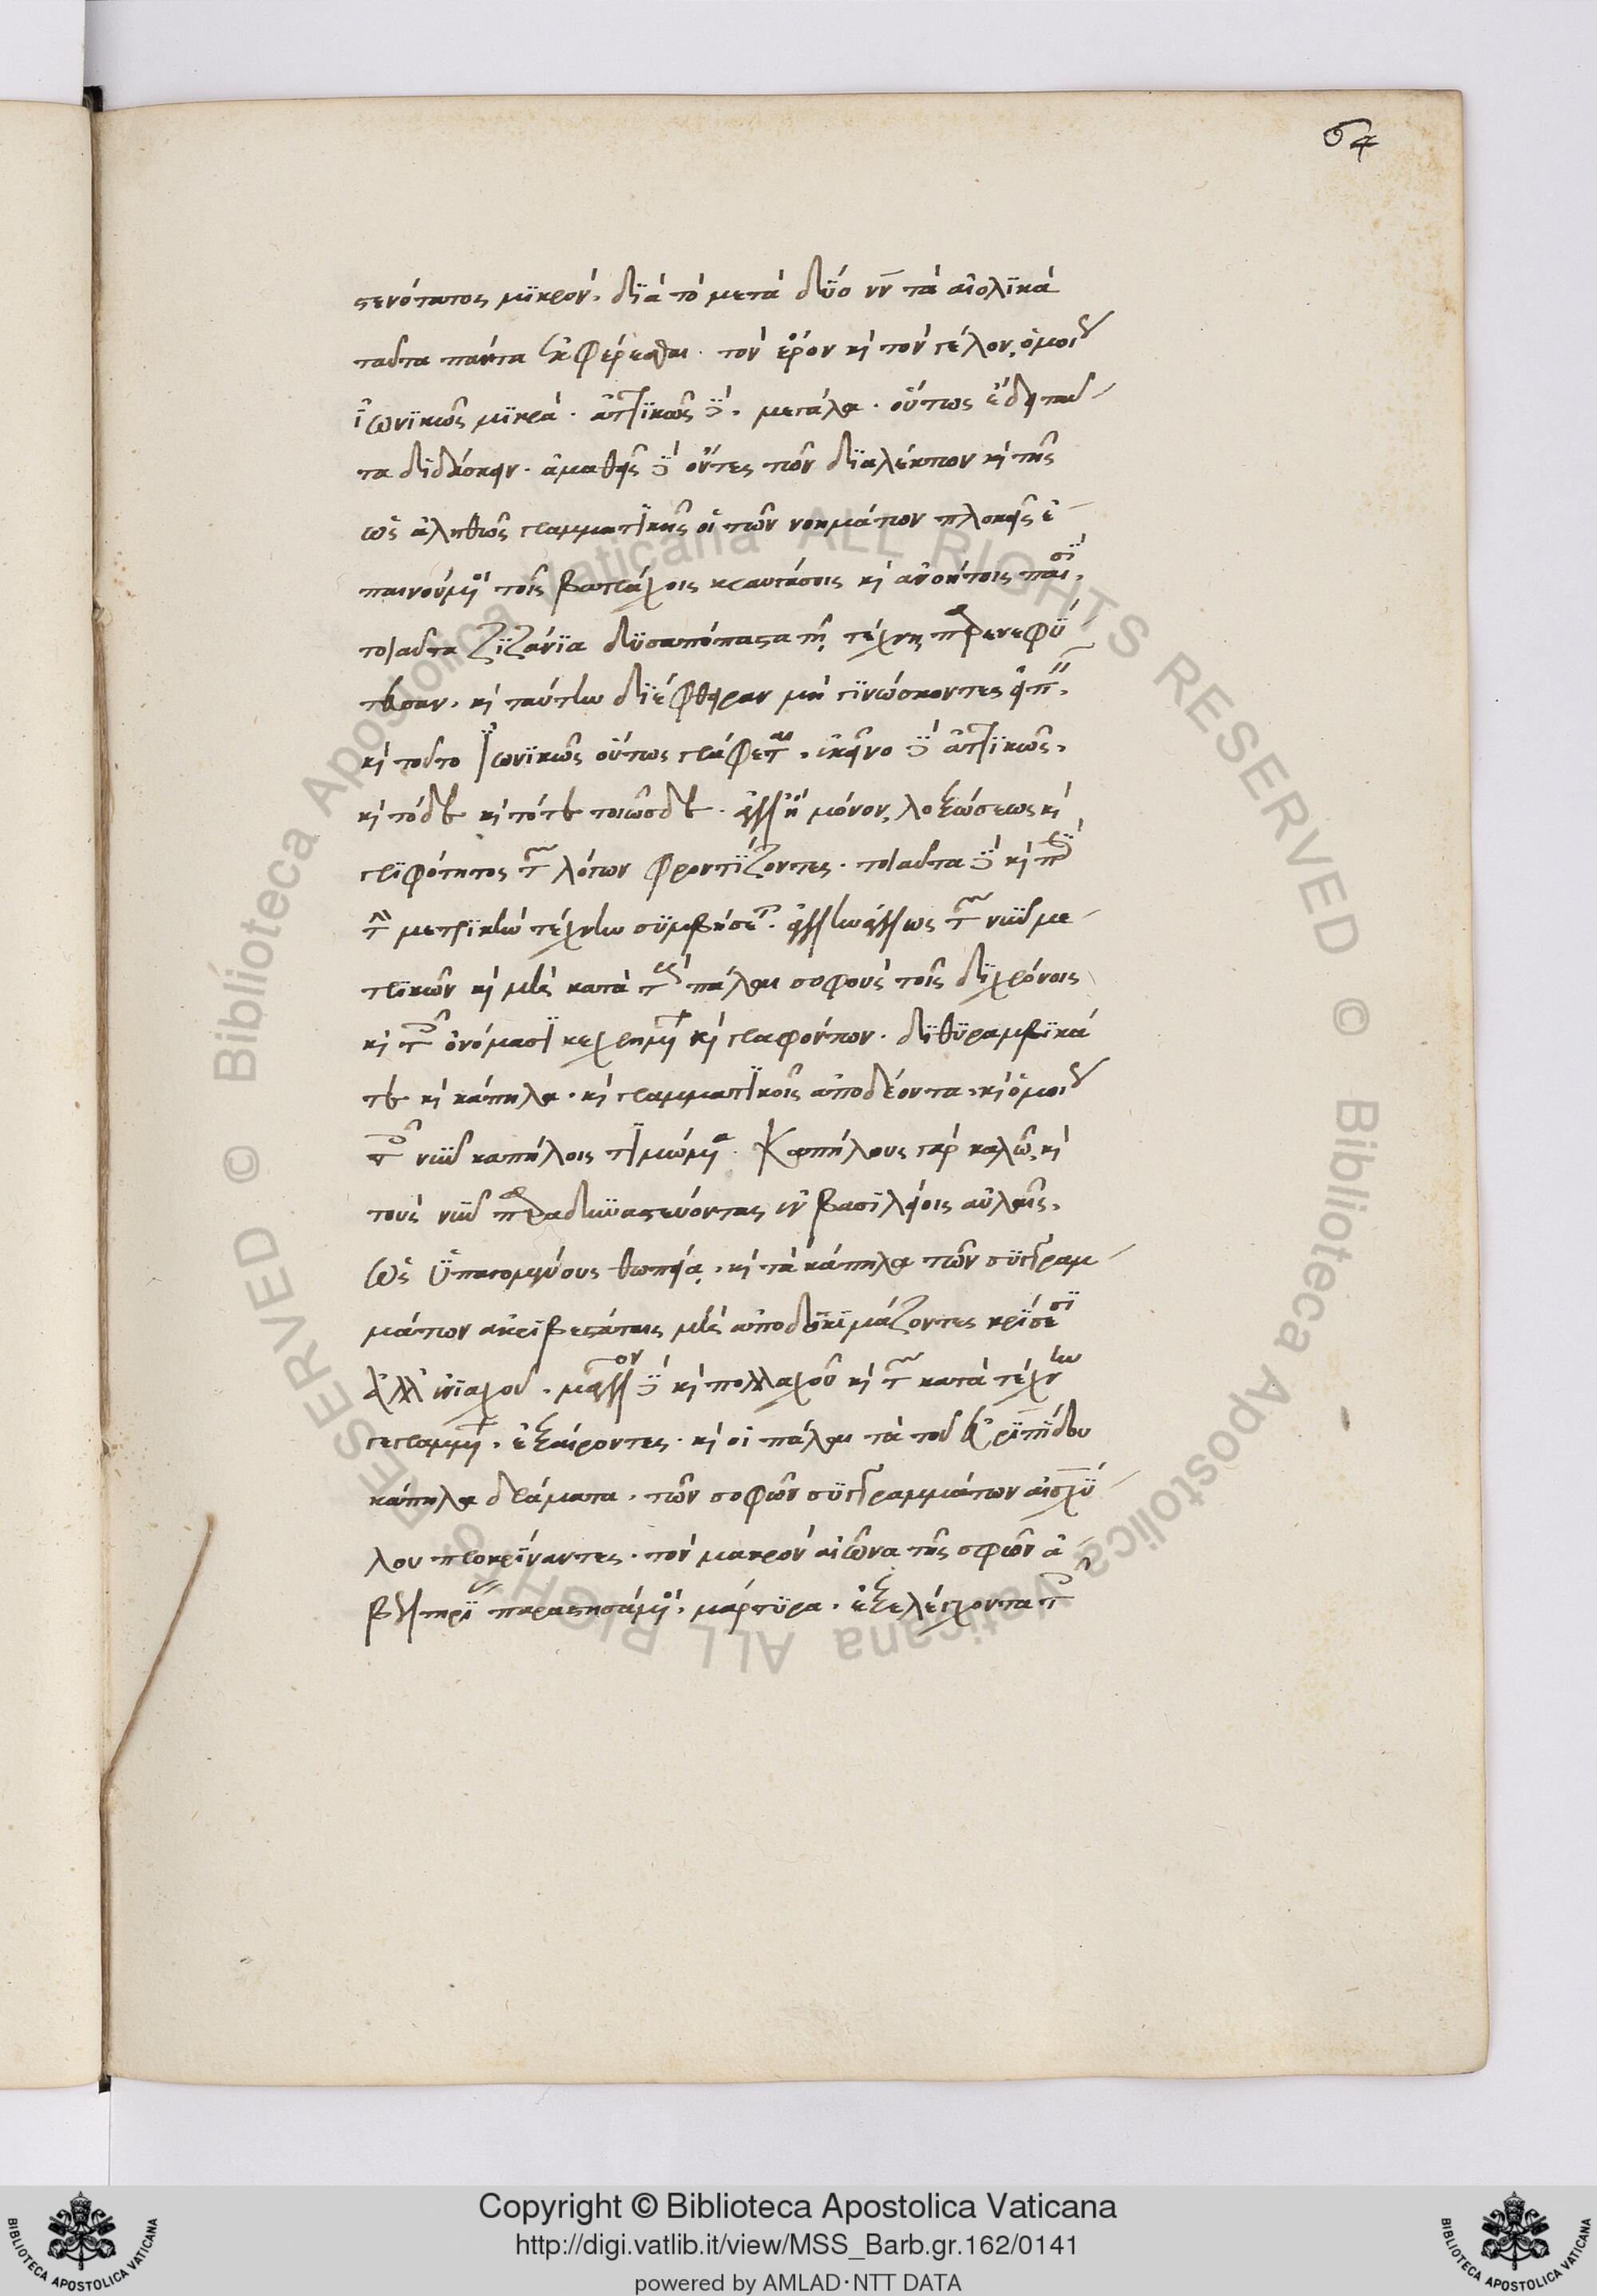 64
στενότατος μϊκρόν. δϊὰ τὸ μετὰ δύο νν τὰ αἰολϊκὰ
ταῦτα πάντα ἐκφέρεσθαι. τὸν ξερὸν καὶ τὸν στέλον, ὁμοίως
ϊωνϊκῶς μϊκρά. ἀττϊκῶς δὲ, μεγάλα. οὕτως ἔδει ταῦ-
τα διδάσκειν. ἀμαθεῖς δὲ ὄντες τῶν δϊαλέκτων καὶ τῆς
ὡς ἀληθῶς γραμματϊκῆς οἱ τῶν νοημάτων πλοκεῖς ἐ-
παινούμενοι τοῖς βατράχοις κραυγάσοις καὶ ἀνοήτοις πᾶσϊ,
τοιαῦτα ζϊζάνϊα δϋσαπόπαστα τῇ τέχνῃ παρενεφύ-
τευσαν. καὶ ταύτην δϊέφθειραν μὴ γϊνώσκοντες εἰπεῖν,
καὶ τοῦτο ϊωνϊκῶς οὕτως γράφεται, ἐκεῖνο δὲ ἀττϊκῶς,
καὶ τόδε καὶ τότε τοιῶσδε. ἀλλ' ἢ μόνον λοξώσεως καὶ
γρϊφότητος τῶν λόγων φροντίζοντες. τοιαῦτα δὲ καὶ περὶ
τὴν μετρϊκὴν τέχνην σϋμβήσεται. ἄλλην ἄλλως τῶν νῦν με-
τρϊκῶν καὶ μὴ κατὰ τοὺς πάλαι σοφοὺς τοῖς δϊχρόνοις
καὶ τοῖς ὀνόμασϊ κεχρημένων καὶ γραφόντων. δϊθϋραμβϊκά
τε καὶ κάπηλα. καὶ γραμματϊκοῖς ἀποδέοντα, καὶ ὁμοίως
τοῖς νῦν καπήλοις τϊμώμενα. Καπήλους γὰρ καλῶ, καὶ
τοὺς νῦν παραδυναστεύοντας ἐν βασϊλείοις αὐλαῖς,
ὡς ϋπαγομένους θωπείᾳ, καὶ τὰ κάπηλα τῶν σϋγγραμ-
μάτων ἀκρϊβεστάταις μὲν ἀποδοκϊμάζοντες κρίσεσϊ
ἀλλ' ἐνϊαχοῦ. μᾶλλον δὲ καὶ πολλαχοῦ καὶ τῶν κατὰ τέχνην
γεγραμμένων. ἐξαίροντες. καὶ οἱ πάλαι τὰ τοῦ Εὐρϊπίδου
κάπηλα δράματα. τῶν σοφῶν σϋγγραμμάτων αἰσχύ-
λου προκρίναντες. τὸν μακρὸν αἰῶνα τῆς σφῶν ἀ-
βελτηρίας παραστησάμενοι, μάρτϋρα. ἐξελέγχοντα τῆς
Copyright © Biblioteca Apostolica Vaticana
http://digi.vatlib.it/view/MSS_Barb.gr.162/0141
powered by AMLAD·NTT DATA